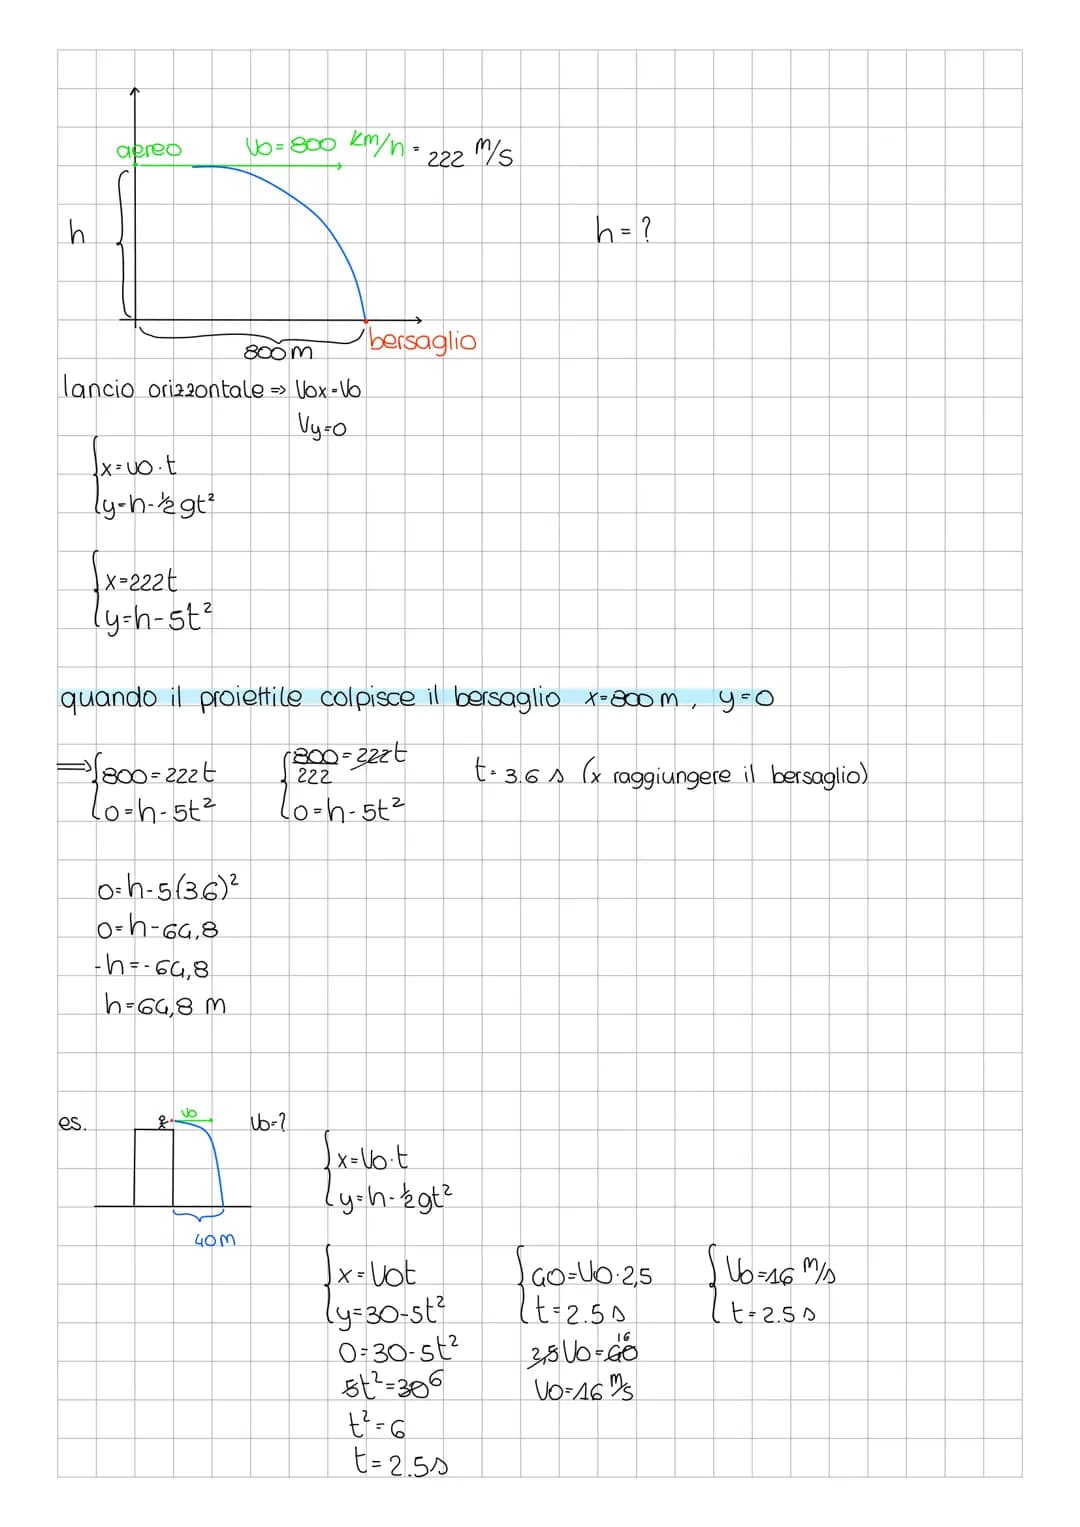 aereo V₀=800 km/h = 222 m/s
h
h = ?
800m
bersaglio
lancio orizzontale ⇒ V₀x=V₀
Vy=0
x=V₀·t
y=h-½gt²
x=222t
y=h-5t²
quando il proiettile colpisce il bersaglio x=800m, y=0
⇒ 800=222t
0=h-5t²
800=222t
222
0=h-5t²
t=3.6 s (x raggiungere il bersaglio)
0=h-5(3.6)²
0=h-64,8
-h=-64,8
h=64,8 m
es.
V₀
V₀=?
40m
x=V₀·t
y=h-½gt²
x=V₀t
y=30-5t²
0=30-5t²
5t²=30 6
t²=6
t=2.5s
40=V₀·2,5
t=2.5 s
2,5V₀=40 16
V₀=16 m/s
V₀=16 m/s
t=2.5 s